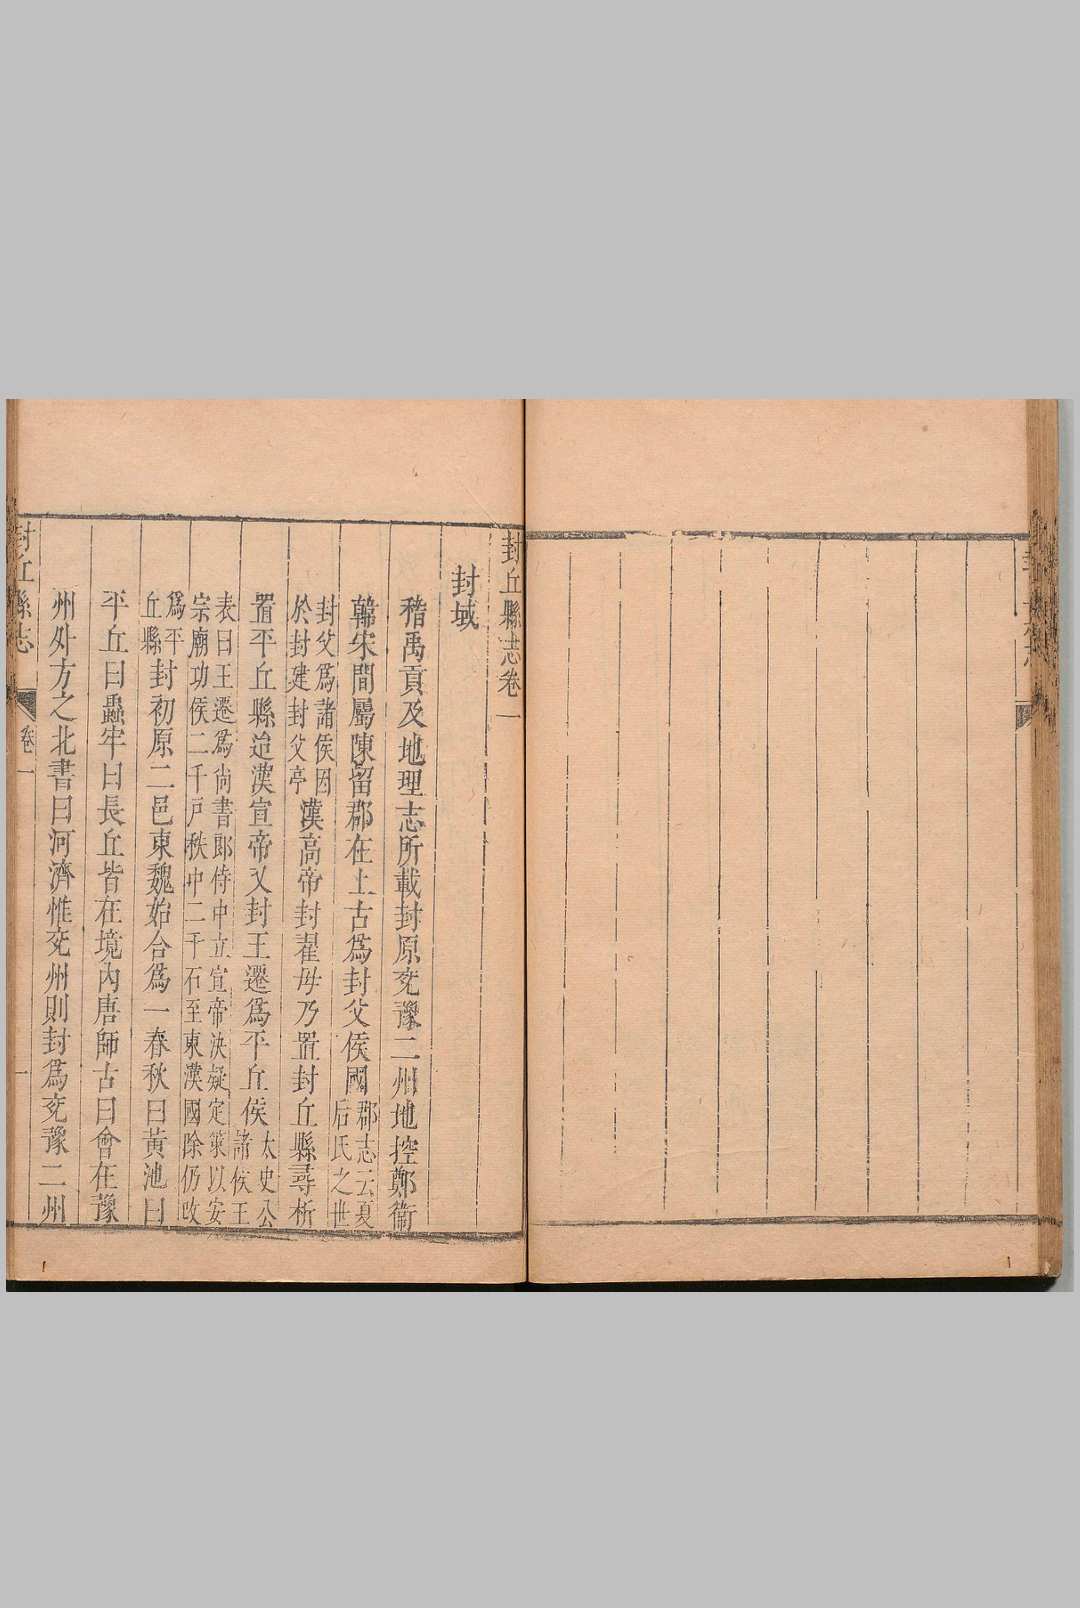 封丘縣志
封丘縣志卷一
封域
稽禹貢及地理志所載封原兖豫二州地控鄭衞
韓宋間屬陳留郡在上古爲封父侯國郡志云夏后氏之世
封父爲諸侯因於封建封父亭漢高帝封翟母乃置封丘縣尋析
置平丘縣迨漢宣帝又封王遷爲平丘侯太史公諸侯王
表曰王遷爲尚書郎侍中立宣帝決疑定策以安宗廟功侯二千戸秩中二千石至東漢國除仍改
爲平丘縣封初原二邑東魏始合爲一春秋曰黃池曰
平丘曰蟲牢曰長丘皆在境內唐師古曰會在豫
州外方之北書曰河濟惟兖州則封爲兖豫二州
封丘縣志
卷一
一